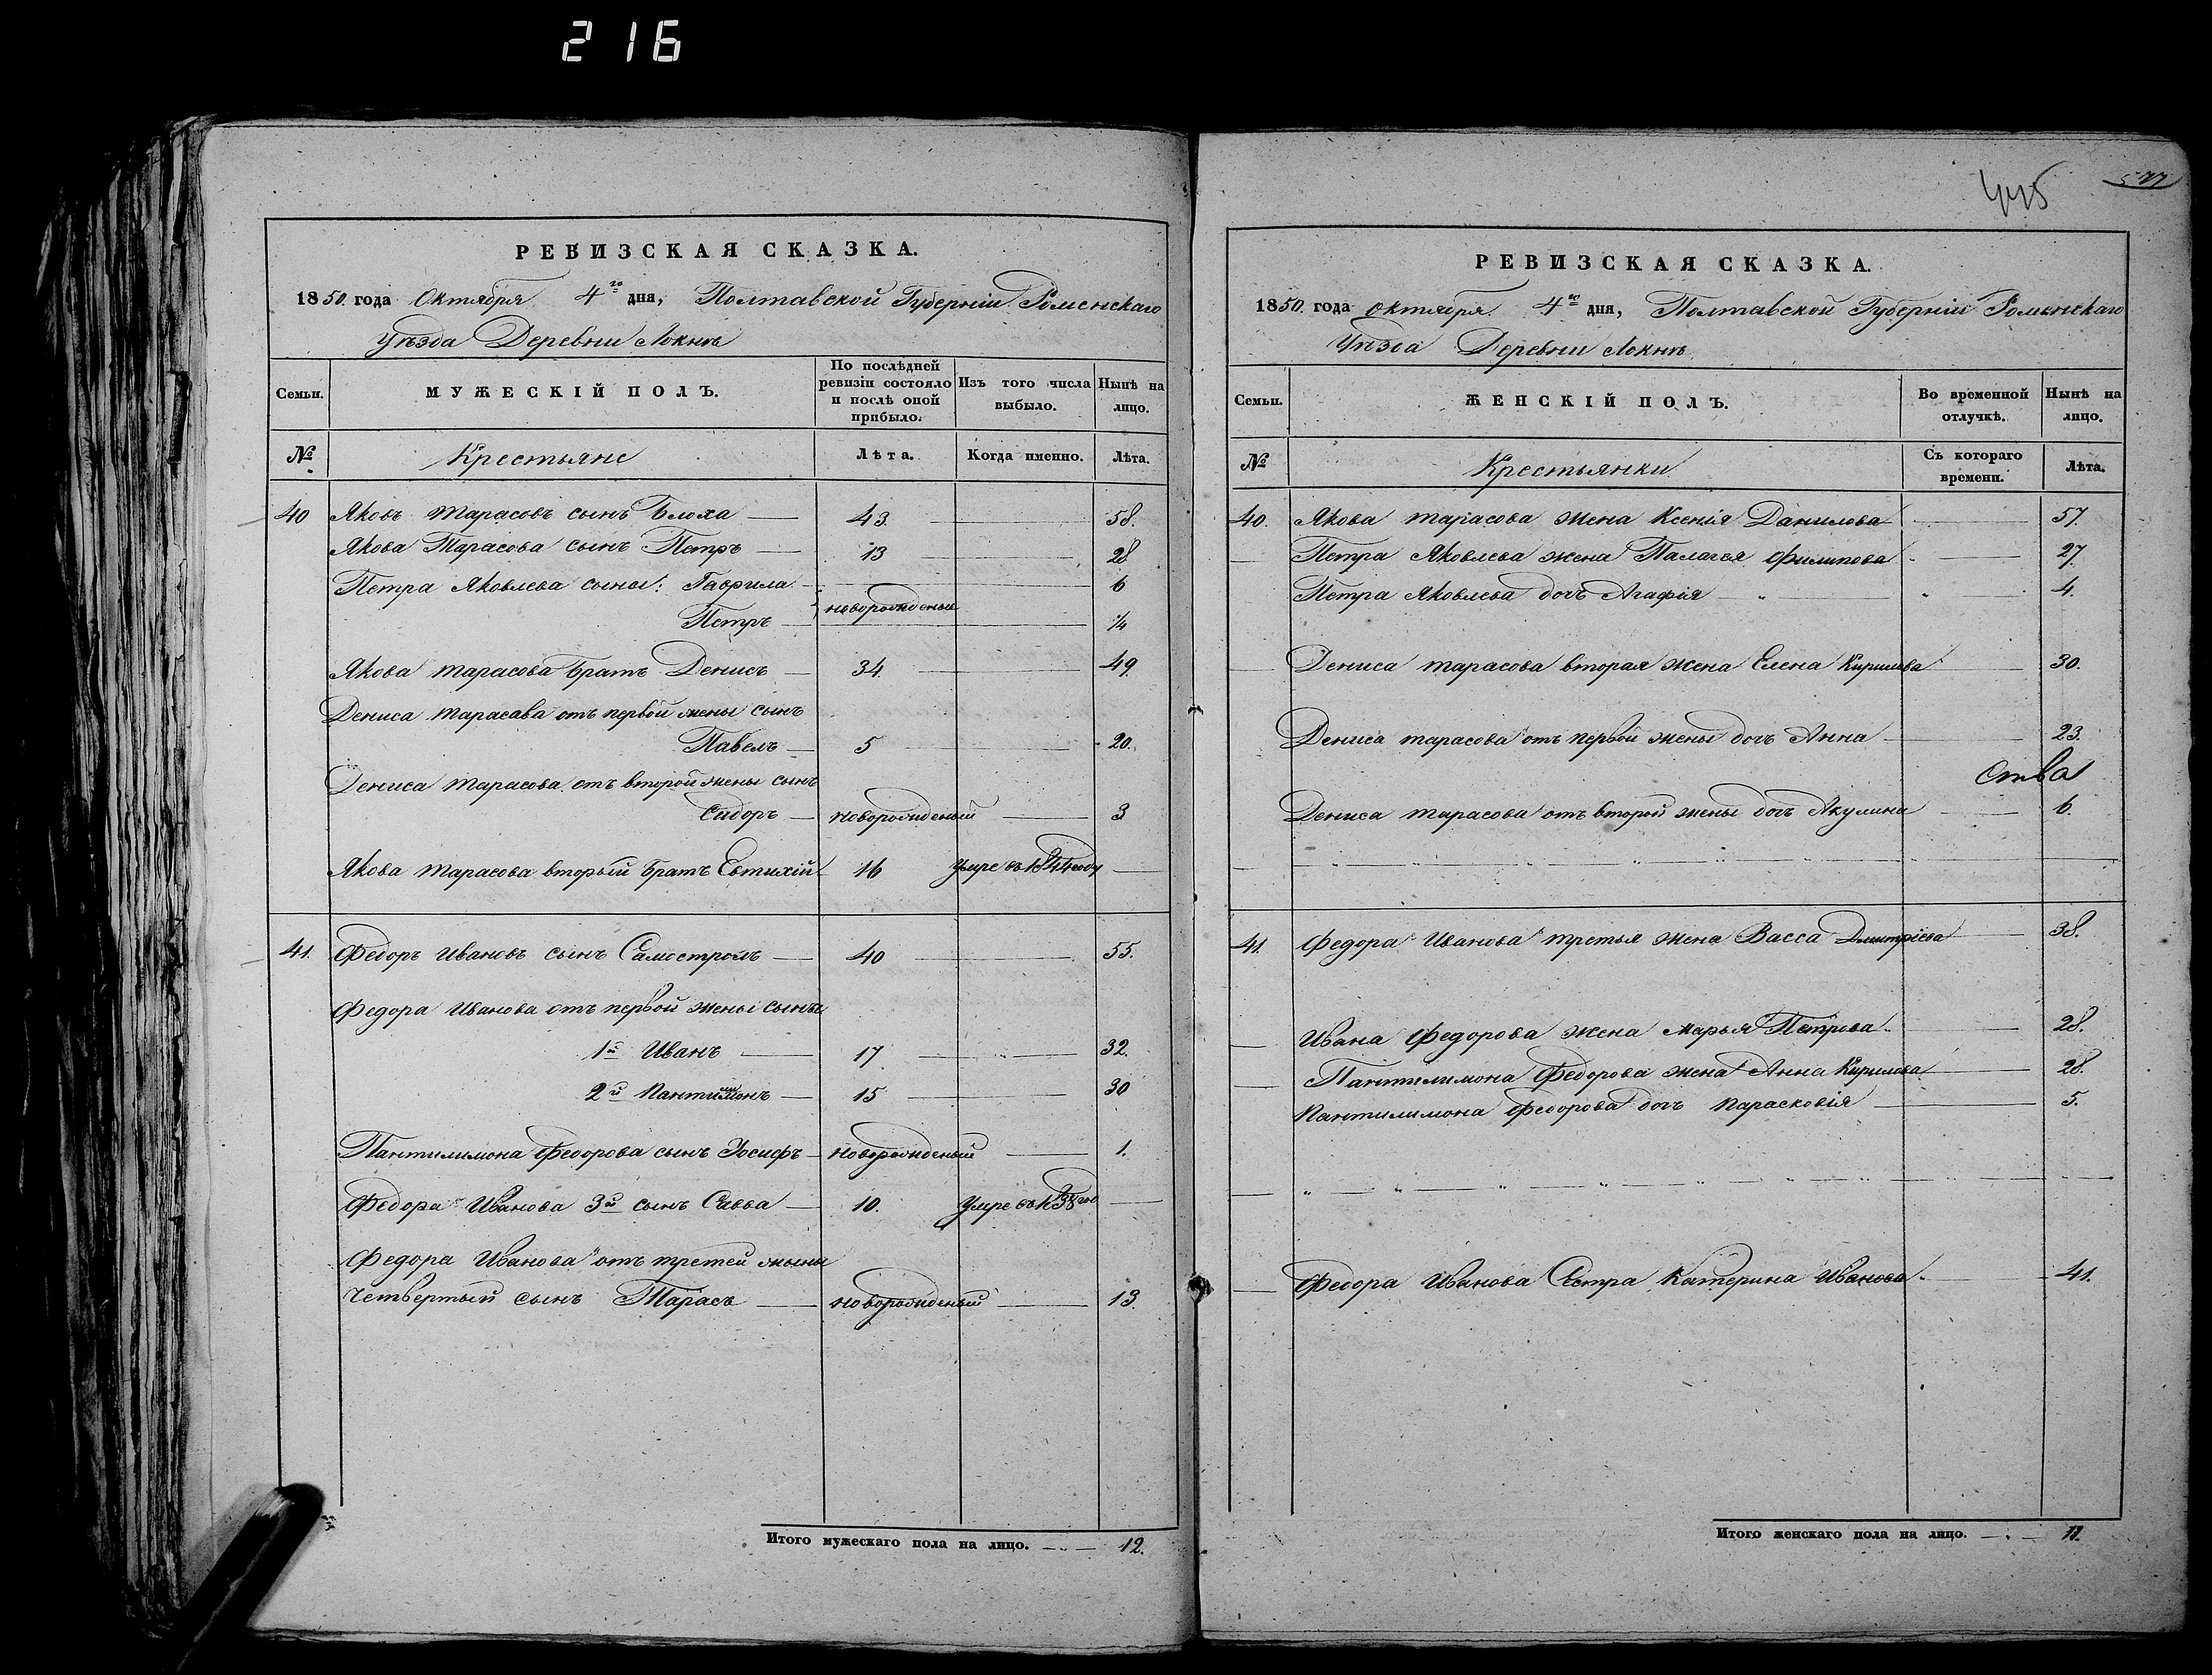 216
РЕВИЗСКАЯ СКАЗКА.
1850. года Октября 4го дня, Полтавской Губерніи Роменскаго
Уѣзда Деревни Локнѣ
Семьи.
МУЖЕСКІЙ ПОЛЪ.
По послѣдней ревизіи состояло и послѣ оной прибыло.
Изъ того числа выбыло.
Нынѣ на лицо.
№
Крестьяне
Лѣта.
Когда именно.
Лѣта.
40 Яковъ Тарасовъ сынъ Блоха — 43. 58.
Якова Тарасова сынъ Петръ — 13 28
Петра Яковлева сыны: Гаврила — 6
новорожденые
Петръ — 1/4
Якова Тарасова братъ Денисъ — 34. 49.
Дениса Тарасава отъ первой жены сынъ
Павелъ — 5 20.
Дениса Тарасова отъ второй жены сынъ
Сидоръ — новорожденый — 3
Якова Тарасова вторый братъ Евтихій 16 Умре въ 1844 году —
41. Федоръ Ивановъ сынъ Самостролъ — 40 55.
Федора Иванова отъ первой жены сынъ
1й Иванъ — 17 32.
2й Пантилимонъ — 15 30
Пантилимона Федорова сынъ Іосифъ — новорожденый — 1.
Федора Иванова 3й сынъ Савва — 10. Умре въ 1838 го —
Федора Иванова отъ третей жены
Четвертый сынъ Тарасъ — новорожденый — 13.
Итого мужескаго пола на лицо. — 12.
445
577
РЕВИЗСКАЯ СКАЗКА.
1850. года октября. 4го дня, Полтавской Губерніи Роменскаго
Уѣзда Деревни Локнѣ
Семьи.
ЖЕНСКІЙ ПОЛЪ.
Во временной отлучкѣ.
Нынѣ на лицо.
№
Крестьянки
Съ котораго времени.
Лѣта.
40. Якова Тарасова жена Ксенія Данилова — 57.
Петра Яковлева жена Палагея Филипова — 27.
Петра Яковлева дочъ Агафія — 4.
Дениса Тарасова вторая жена Елена Кирилова — 30.
Дениса Тарасова отъ первой жены дочъ Анна — 23.
ства
Дениса Тарасова отъ второй жены дочъ Акулина — 6.
41. Федора Иванова третья жена Васса Дмитріева — 38.
Ивана Федорова жена Марья Петрова — 28.
Пантилимона Федорова жена Анна Кирилова — 28.
Пантилимона Федорова дочъ Парасковія — 5.
Федора Иванова Сестра Катерина Иванова — 41.
Итого женскаго пола на лицо. — 11.